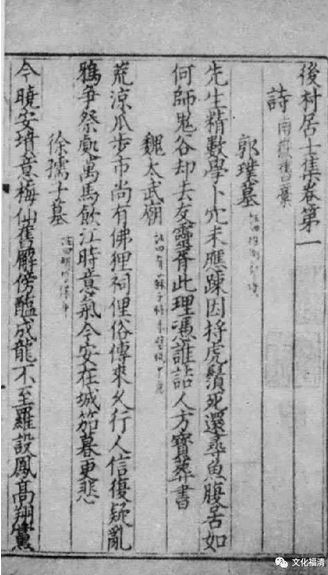 後村居士集卷第一
詩 南嶽舊藁
郭璞墓
先生精數學卜穴未應踈因捋虎鬚死還尋魚腹居如
何師鬼谷却去友靈胥此理憑誰詰人方寶葬書
魏太武廟
荒涼瓜步市尚有佛貍祠俚俗傳來久行人信復疑亂
鴉爭祭處萬馬飲江時意氣今安在城笳暮更悲
徐孺子墓
今曉安墳意梅仙舊解傍醢成龍不至羅設鳳高翔黨
文化福清